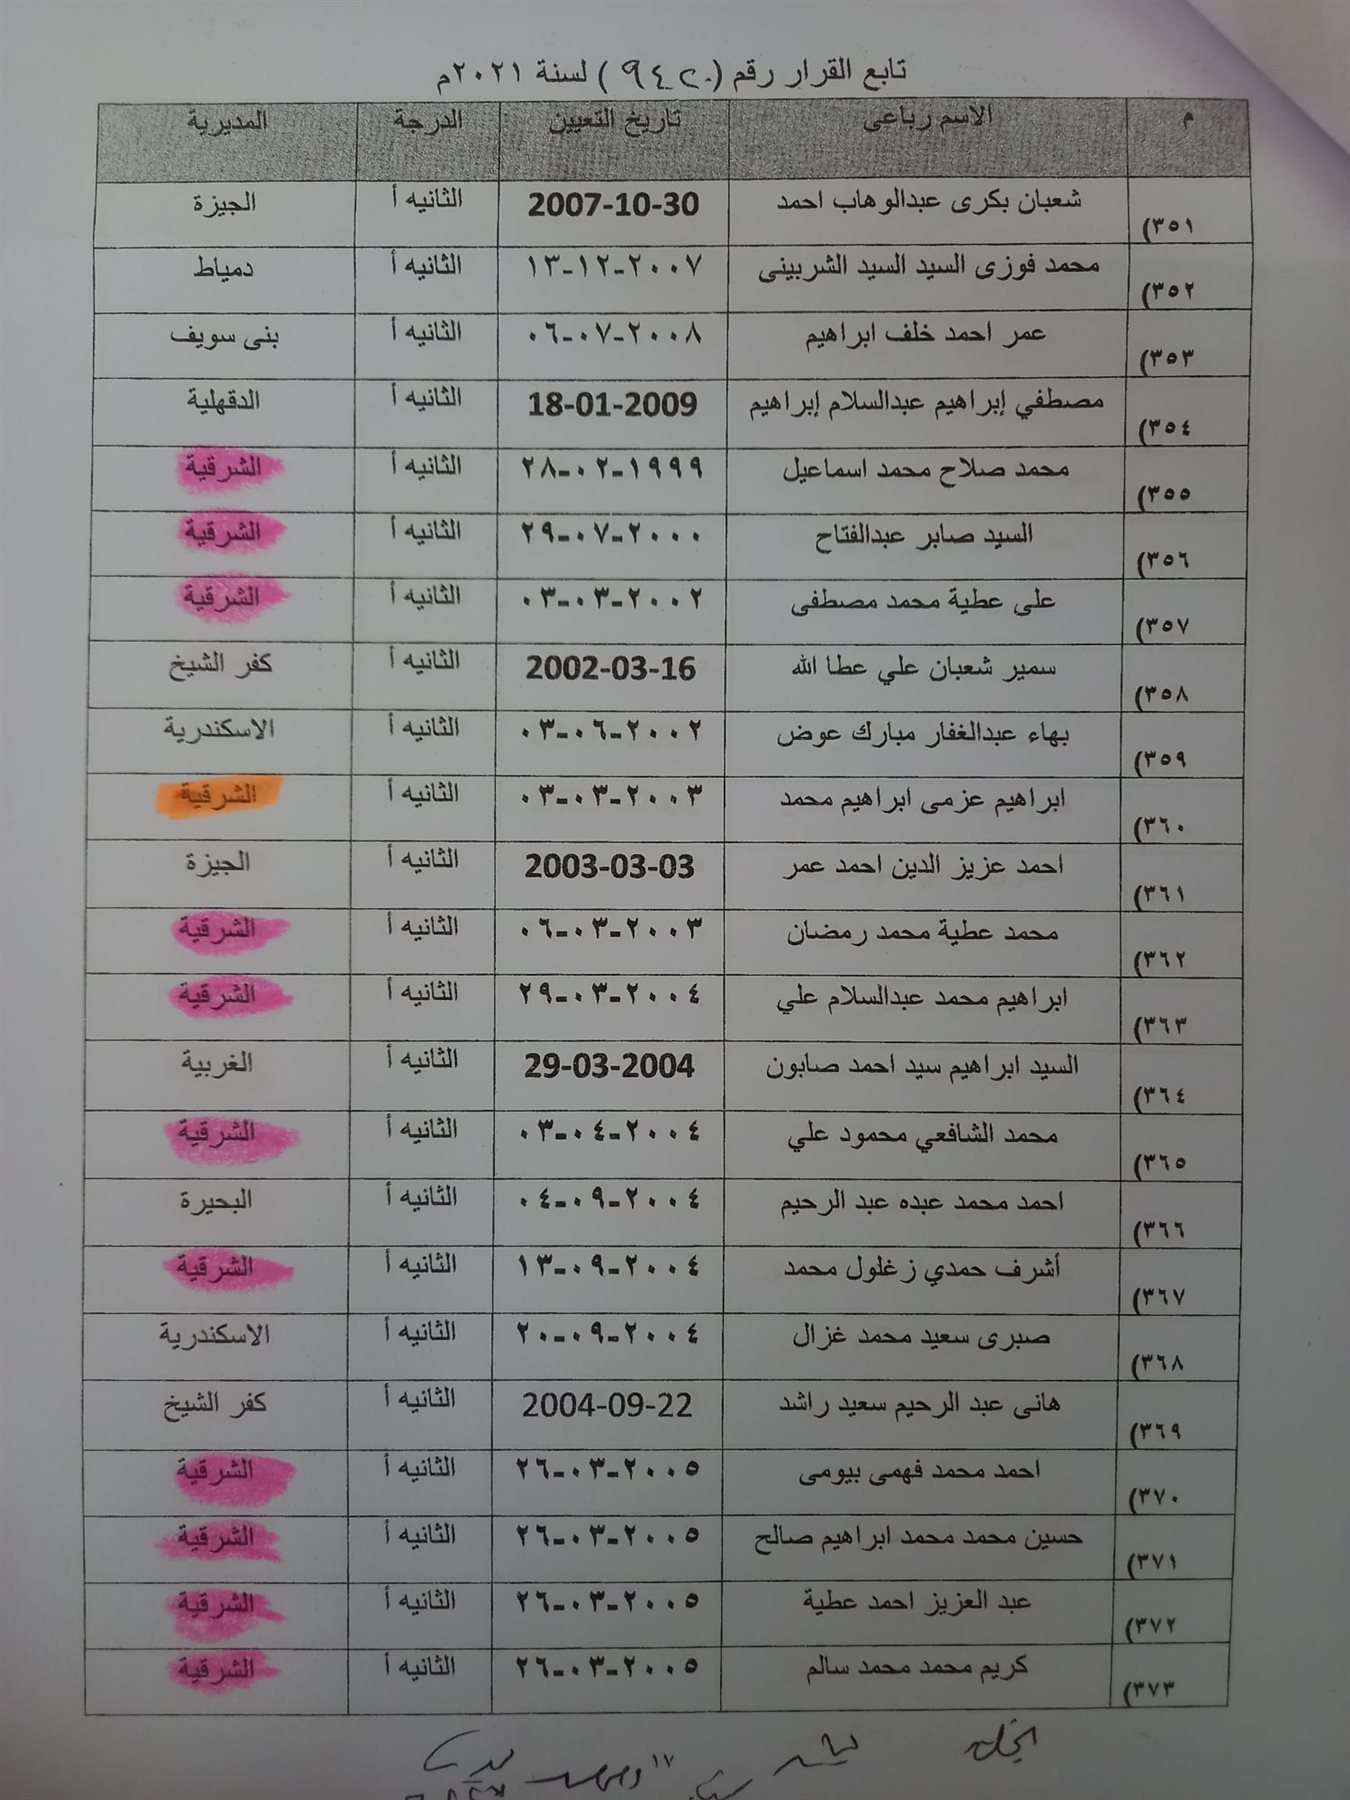 تابع القرار رقم (٩٤٢٠) لسنة ٢٠٢١م
م الاسم رباعى تاريخ التعيين الدرجة المديرية
(٣٥١ شعبان بكرى عبدالوهاب احمد 2007-10-30 الثانيه أ الجيزة
(٣٥٢ محمد فوزى السيد السيد الشربينى ١٣-١٢-٢٠٠٧ الثانيه أ دمياط
(٣٥٣ عمر احمد خلف ابراهيم ٠٦-٠٧-٢٠٠٨ الثانيه أ بنى سويف
(٣٥٤ مصطفي إبراهيم عبدالسلام إبراهيم 18-01-2009 الثانيه أ الدقهلية
(٣٥٥ محمد صلاح محمد اسماعيل ٢٨-٠٢-١٩٩٩ الثانيه أ الشرقية
(٣٥٦ السيد صابر عبدالفتاح ٢٩-٠٧-٢٠٠٠ الثانيه أ الشرقية
(٣٥٧ على عطية محمد مصطفى ٠٣-٠٣-٢٠٠٢ الثانيه أ الشرقية
(٣٥٨ سمير شعبان علي عطا الله 2002-03-16 الثانيه أ كفر الشيخ
(٣٥٩ بهاء عبدالغفار مبارك عوض ٠٣-٠٦-٢٠٠٢ الثانيه أ الاسكندرية
(٣٦٠ ابراهيم عزمى ابراهيم محمد ٠٣-٠٣-٢٠٠٣ الثانيه أ الشرقية
(٣٦١ احمد عزيز الدين احمد عمر 2003-03-03 الثانيه أ الجيزة
(٣٦٢ محمد عطية محمد رمضان ٠٦-٠٣-٢٠٠٣ الثانيه أ الشرقية
(٣٦٣ ابراهيم محمد عبدالسلام علي ٢٩-٠٣-٢٠٠٤ الثانيه أ الشرقية
(٣٦٤ السيد ابراهيم سيد احمد صابون 29-03-2004 الثانيه أ الغربية
(٣٦٥ محمد الشافعي محمود علي ٠٣-٠٤-٢٠٠٤ الثانيه أ الشرقية
(٣٦٦ احمد محمد عبده عبد الرحيم ٠٤-٠٩-٢٠٠٤ الثانيه أ البحيرة
(٣٦٧ أشرف حمدي زغلول محمد ١٣-٠٩-٢٠٠٤ الثانيه أ الشرقية
(٣٦٨ صبرى سعيد محمد غزال ٢٠-٠٩-٢٠٠٤ الثانيه أ الاسكندرية
(٣٦٩ هانى عبد الرحيم سعيد راشد 2004-09-22 الثانيه أ كفر الشيخ
(٣٧٠ احمد محمد فهمى بيومى ٢٦-٠٣-٢٠٠٥ الثانيه أ الشرقية
(٣٧١ حسين محمد محمد ابراهيم صالح ٢٦-٠٣-٢٠٠٥ الثانيه أ الشرقية
(٣٧٢ عبد العزيز احمد عطية ٢٦-٠٣-٢٠٠٥ الثانيه أ الشرقية
(٣٧٣ كريم محمد محمد سالم ٢٦-٠٣-٢٠٠٥ الثانيه أ الشرقية